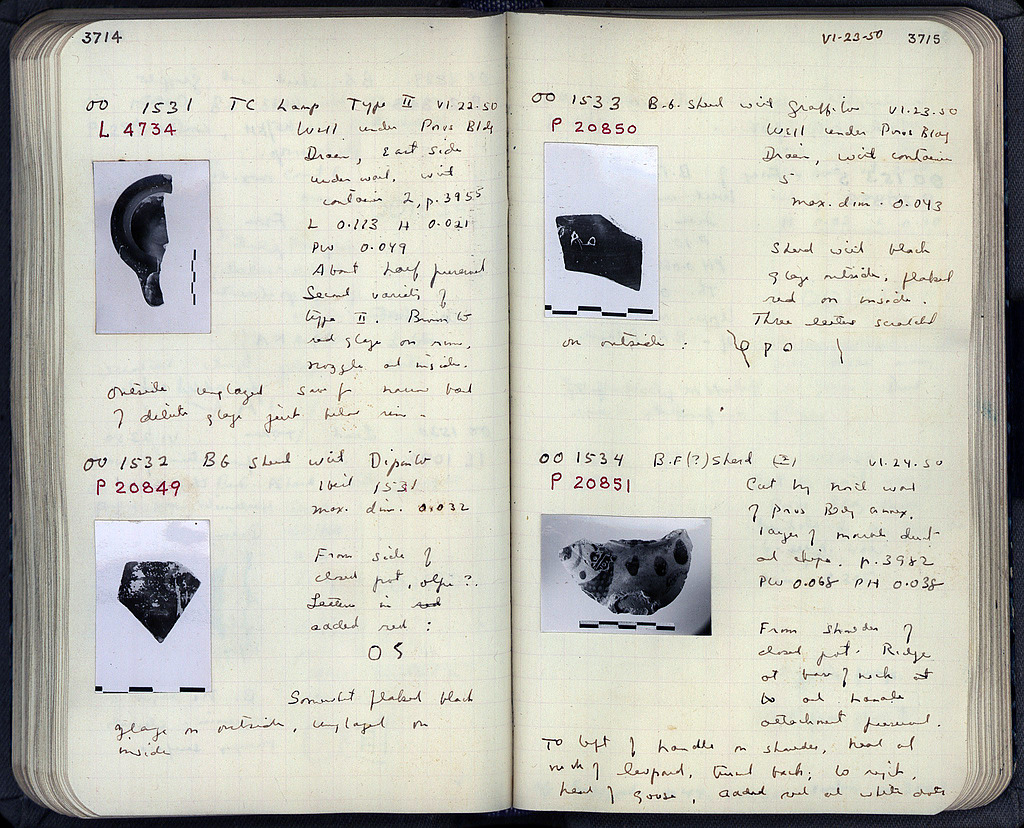 3714
OO 1531 TC Lamp Type II VI.22.50
L 4734
Well under Poros Bldg
Drain, East side
under wall, with
container 2, p.3955
L 0.113 H 0.021
PW 0.049
About half preserved
Second variety of
type II. Brown to
red glaze on rim,
nozzle and inside.
Outside unglazed save for narrow band
of dilute glaze just below rim.
OO 1532 BG sherd with Dipinto
P 20849
1531
max. dim. 0.032
From side of
closed pot, olpe?.
Letters in red
added red:
OS
Somewhat flaked black
glaze on outside, unglazed on
inside
VI-23-50 3715
OO 1533 B.G. sherd with graffito VI.23.50
P 20850
Well under Poros Bldg
Drain, with container
5
max. dim. 0.043
Sherd with black
glaze outside, flaked
red on inside.
Three letters scratched
on outside:
OO 1534 B.F(?) Sherd VI.24.50
P 20851
Cut by north wall
of Poros Bldg annex,
layer of marble dust
and chips. p.3982
PW 0.068 PH 0.038
From shoulder of
closed pot. Ridge
at base of neck at
to and handle
attachment preserved.
To left of handle on shoulder, head and
neck of leopard, turned back; to right,
head of goose, added red and white dots